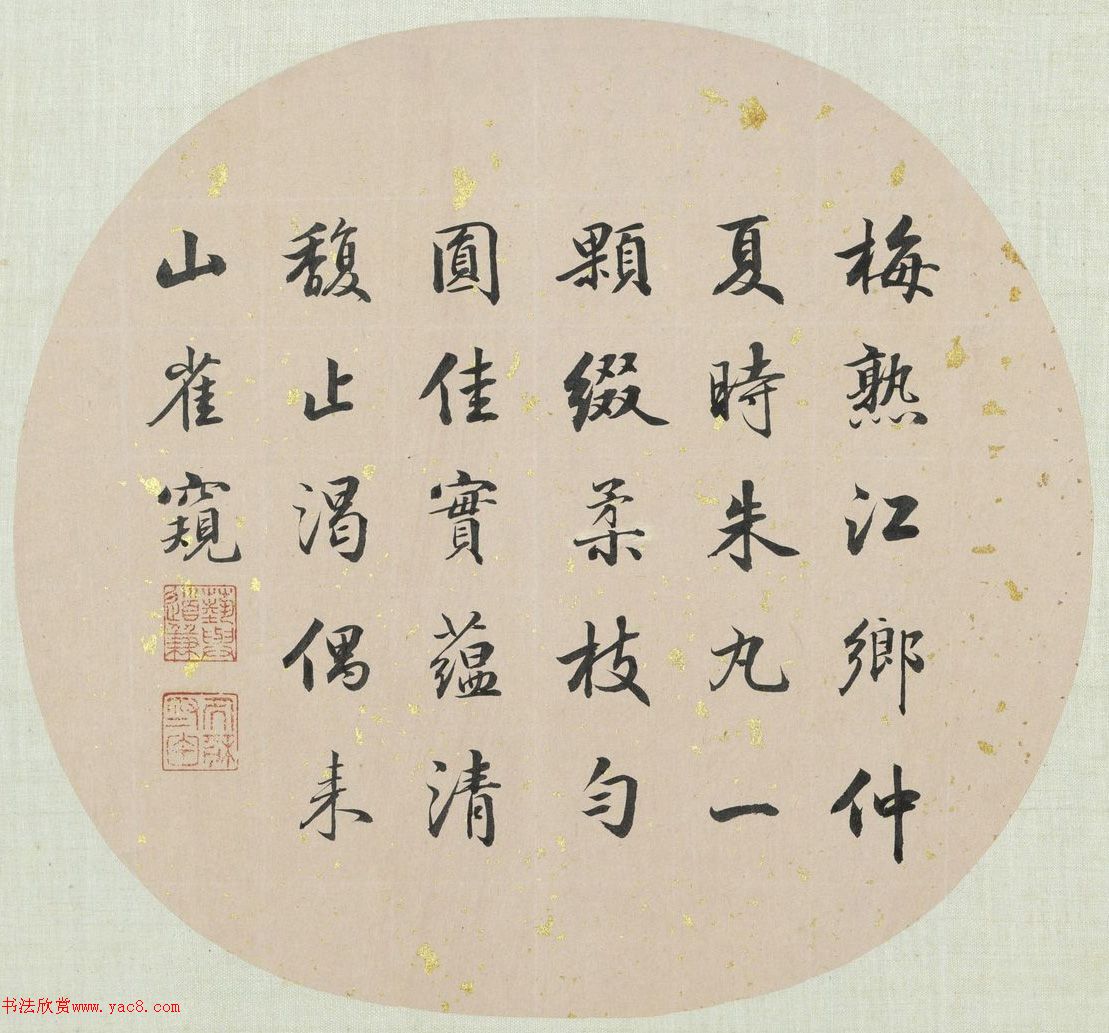 梅熟江鄉仲
夏時朱丸一
顆綴柔枝勻
圓佳實蘊清
馥止渴偶来
山雀窺
书法欣赏www.yac8.com